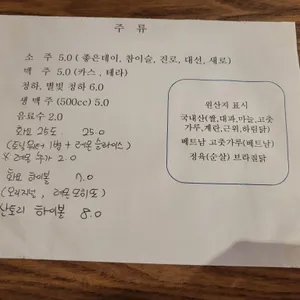 주 류
소 주 5.0 ( 좋은데이, 참이슬, 진로, 대선, 새로)
맥 주 5.0 (카스 , 테라)
청하, 별빛 청하 6.0
생 맥주 (500cc) 5.0
음료수 2.0
화요 25도 25.0
(토닉워터 1병 + 레몬슬라이스)
※ 레몬 추가 2.0
화요 하이볼 7.0
(오리지널 , 레몬 모히또)
산토리 하이볼 8.0
원산지 표시
국내산(쌀,대파,마늘,고춧
가루,계란,근위,하림닭)
베트남 고춧가루(베트남)
정육(순살) 브라질닭